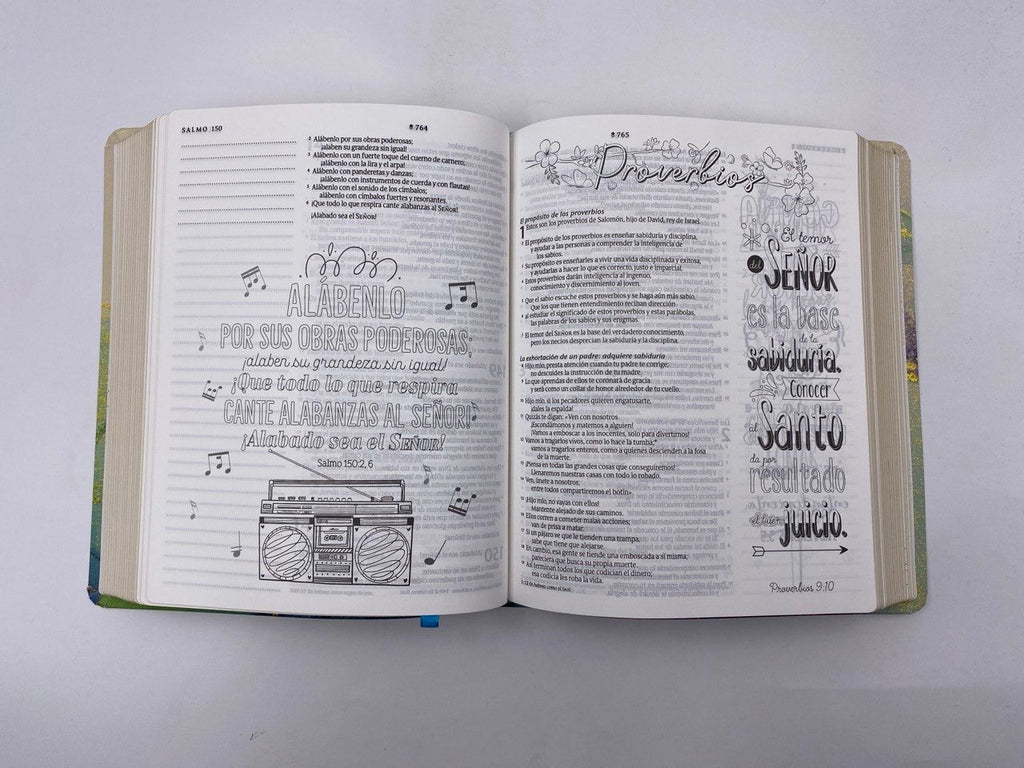 SALMO 150
764
2 Alábenlo por sus obras poderosas;
¡alaben su grandeza sin igual!
3 Alábenlo con un fuerte toque del cuerno de carnero;
¡alábenlo con la lira y el arpa!
4 Alábenlo con panderetas y danzas;
¡alábenlo con instrumentos de cuerda y con flautas!
5 Alábenlo con el sonido de los címbalos;
alábenlo con címbalos fuertes y resonantes.
6 ¡Que todo lo que respira cante alabanzas al SEÑOR!
¡Alabado sea el SEÑOR!
ALÁBENLO
POR SUS OBRAS PODEROSAS,
¡alaben su grandeza sin igual!
¡Que todo lo que respira
CANTE ALABANZAS AL SEÑOR!
¡Alabado sea el SEÑOR!
Salmo 150:2, 6
765
Proverbios
El propósito de los proverbios
1 Estos son los proverbios de Salomón, hijo de David, rey de Israel.
2 El propósito de los proverbios es enseñar sabiduría y disciplina,
y ayudar a las personas a comprender la inteligencia de
los sabios.
3 Su propósito es enseñarles a vivir una vida disciplinada y exitosa,
y ayudarlas a hacer lo que es correcto, justo e imparcial.
4 Estos proverbios darán inteligencia al ingenuo,
conocimiento y discernimiento al joven.
5 Que el sabio escuche estos proverbios y se haga aún más sabio.
Que los que tienen entendimiento reciban dirección
6 al estudiar el significado de estos proverbios y estas parábolas,
las palabras de los sabios y sus enigmas.
7 El temor del SEÑOR es la base del verdadero conocimiento,
pero los necios desprecian la sabiduría y la disciplina.
La exhortación de un padre: adquiere sabiduría
8 Hijo mío, presta atención cuando tu padre te corrige;
no descuides la instrucción de tu madre.
9 Lo que aprendas de ellos te coronará de gracia
y será como un collar de honor alrededor de tu cuello.
10 Hijo mío, si los pecadores quieren engatusarte,
¡dales la espalda!
11 Quizás te digan: «Ven con nosotros.
¡Escondámonos y matemos a alguien!
¡Vamos a emboscar a los inocentes, solo para divertirnos!
12 Vamos a tragarlos vivos, como lo hace la tumba;*
vamos a tragarlos enteros, como a quienes descienden a la fosa
de la muerte.
13 ¡Piensa en todas las grandes cosas que conseguiremos!
Llenaremos nuestras casas con todo lo robado.
14 Ven, únete a nosotros;
entre todos compartiremos el botín».
15 ¡Hijo mío, no vayas con ellos!
Mantente alejado de sus caminos.
16 Ellos corren a cometer malas acciones;
van de prisa a matar.
17 Si un pájaro ve que le tienden una trampa,
sabe que tiene que alejarse.
18 En cambio, esa gente se tiende una emboscada a sí misma;
pareciera que busca su propia muerte.
19 Así terminan todos los que codician el dinero;
esa codicia les roba la vida.
1:12 En hebreo, como el Seol.
El temor
del
SEÑOR
es la base
de la
sabiduría.
Conocer
al
Santo
da por
resultado
el buen
juicio.
Proverbios 9:10